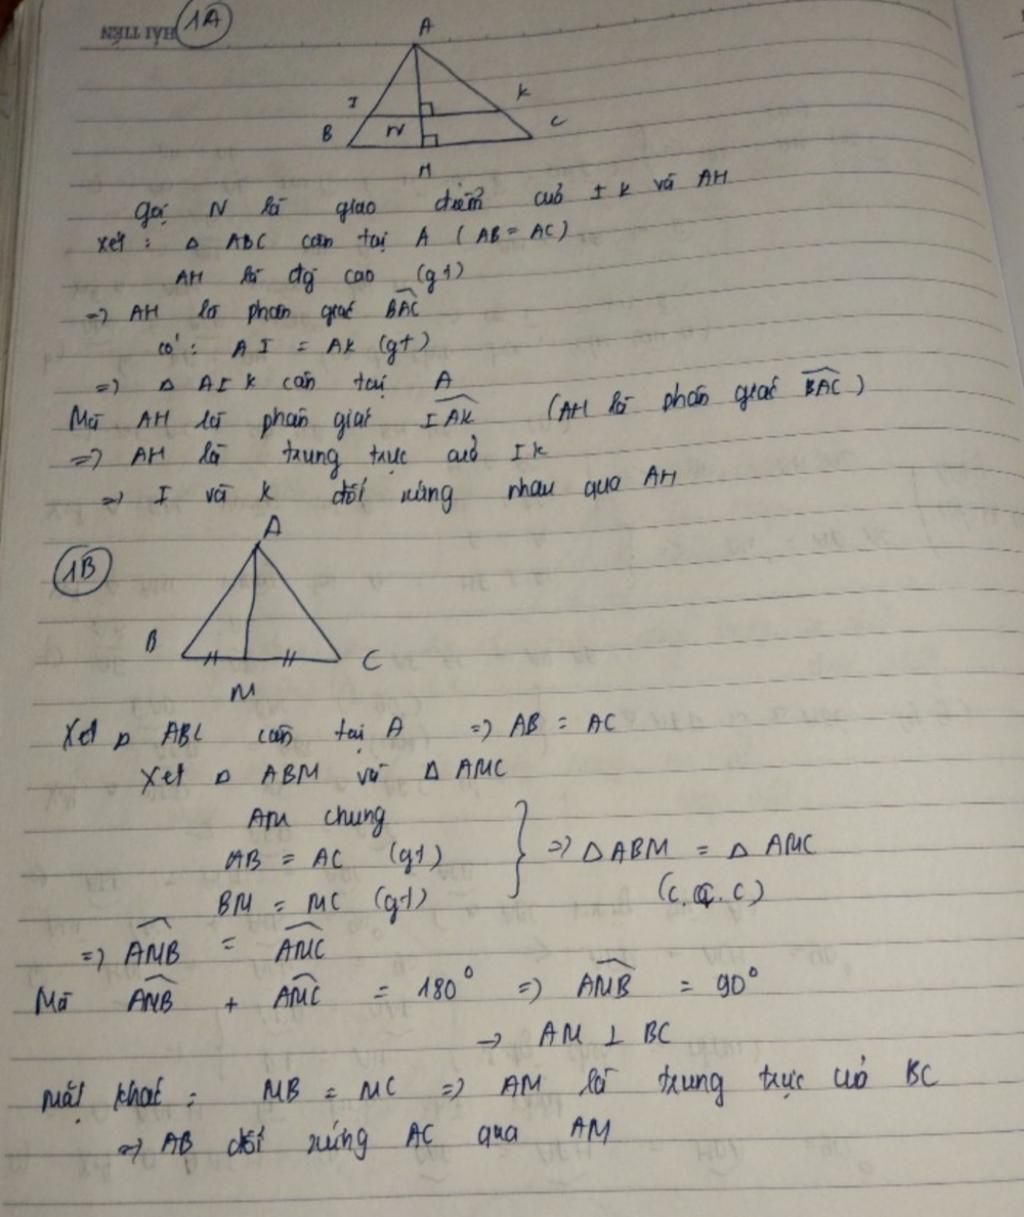 HẢI TIẾN
1A
A
I
K
B
N
C
H
gọi N là giao điểm của I K và AH
Xét : Δ ABC cân tại A ( AB = AC )
AH là đg cao (gt)
=> AH là phân giác BAC
có : A I = AK (gt)
=> Δ AIK cân tại A
Mà AH là phân giác IAK (AH là phân giác BAC )
=> AH là trung trực của IK
=> I và K đối xứng nhau qua AH
1B
A
B
C
M
Xét Δ ABC cân tại A => AB = AC
Xét Δ ABM và Δ AMC
AM chung
AB = AC (gt)
BM = MC (gt)
} => Δ ABM = Δ AMC
(c.c.c)
=> AMB = AMC
Mà AMB + AMC = 180° => AMB = 90°
-> AM ⊥ BC
Mặt khác : MB = MC => AM là trung trực của BC
=> AB đối xứng AC qua AM